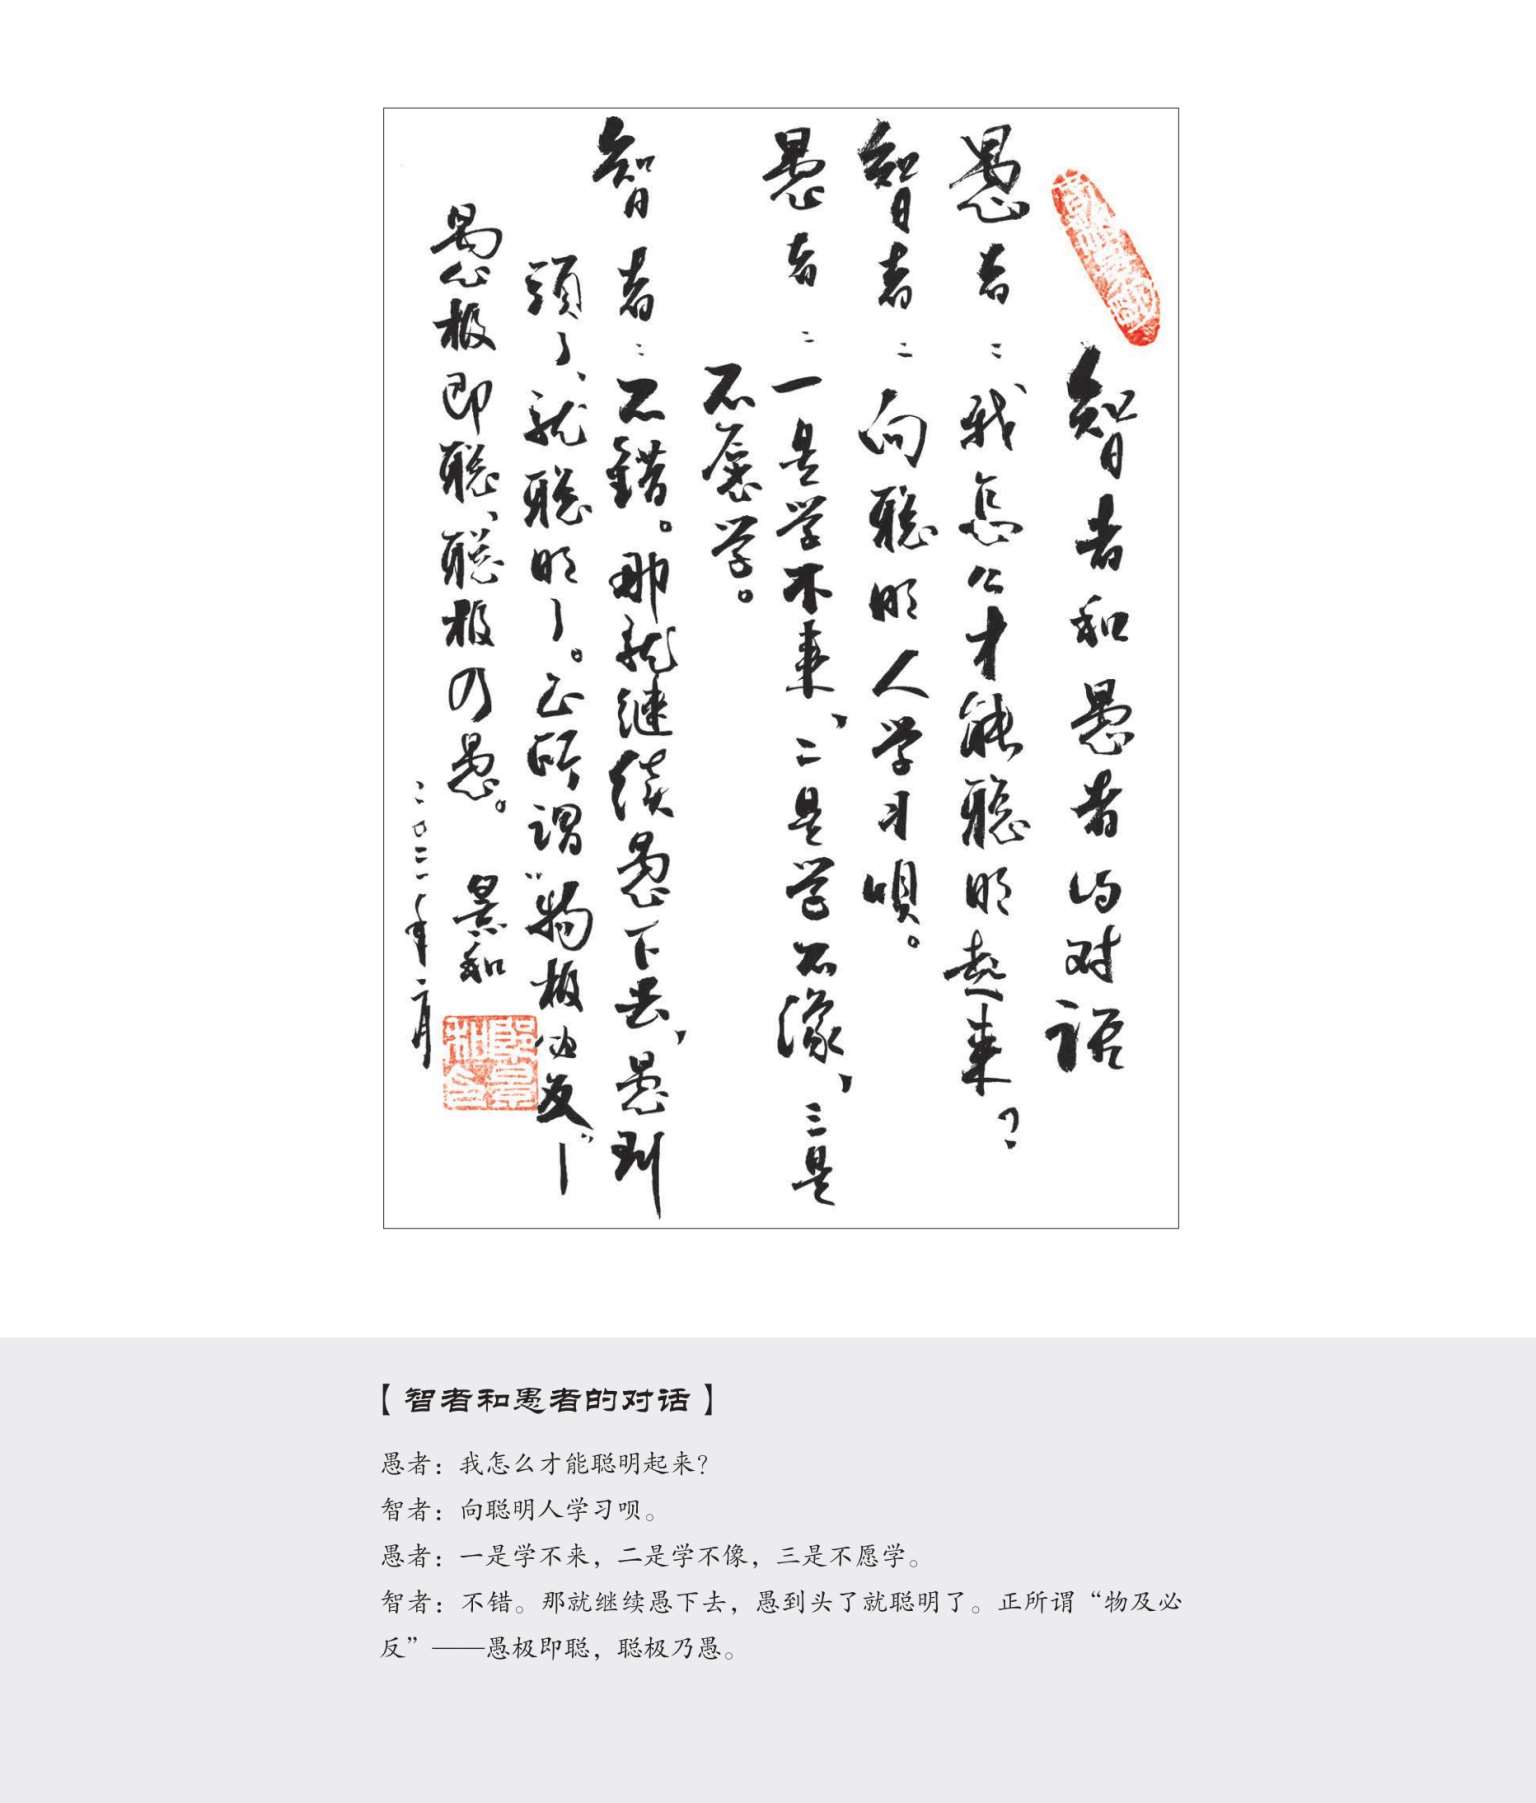 智者和愚者的对话
愚者：我怎么才能聪明起来？
智者：向聪明人学习呗。
愚者：一是学不来，二是学不像，三是
不愿学。
智者：不错。那就继续愚下去，愚到
頭了、就聪明了。正所谓“物极必反”—
愚极即聪、聪极乃愚。 景和
二〇二一年二月
郎景和印
【智者和愚者的对话】
愚者：我怎么才能聪明起来？
智者：向聪明人学习呗。
愚者：一是学不来，二是学不像，三是不愿学。
智者：不错。那就继续愚下去，愚到头了就聪明了。正所谓“物及必
反”——愚极即聪，聪极乃愚。